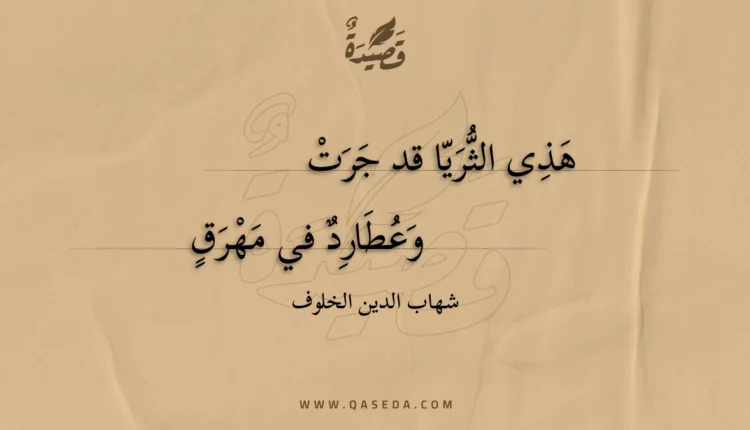 قَصِيدَةٌ
هَذِي الثُّرَيّا قد جَرَتْ
وَعُطَارِدٌ في مَهْرَقٍ
شهاب الدين الخلوف
WWW.QASEDA.COM